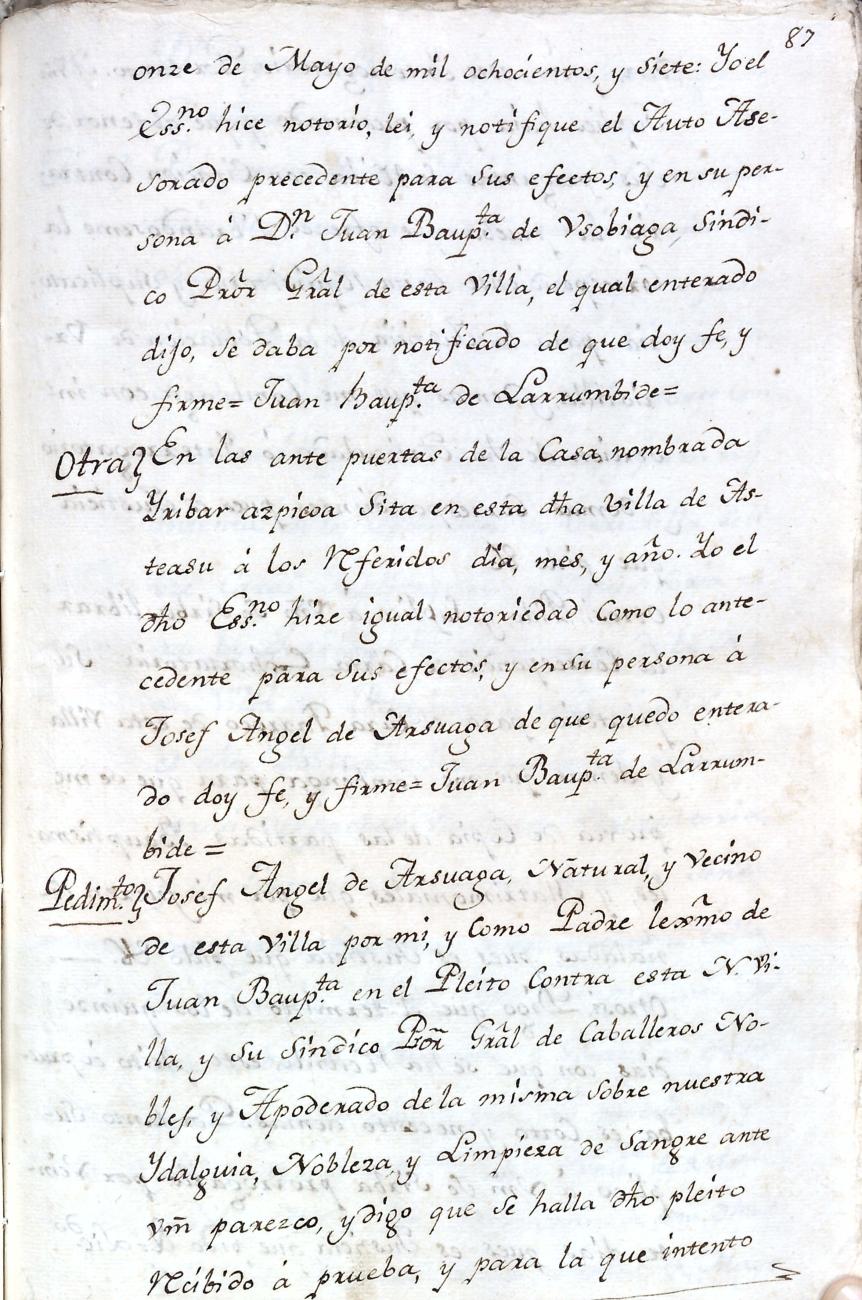 87
onze de Mayo de mil ochocientos, y siete: Yo el
Ess.no hice notorio, lei, y notifique el Auto Ase-
sorado precedente para sus efectos, y en su per-
sona á D.n Juan Baup.ta de Vsobiaga Sindi-
co Prõr Grãl de esta Villa, el qual enterado
dijo, se daba por notificado de que doy fe, y
firme= Juan Baup.ta de Larrumbide=
Otra} En las ante puertas de la Casa nombrada
Yribar azpicoa Sita en esta dha Villa de As-
teasu á los Rferidos dia, mes, y año. Yo el
dho Ess.no hize igual notoriedad como lo ante-
cedente para sus efectos, y en su persona á
Josef Angel de Arsuaga de que quedo entera-
do doy fe, y firme= Juan Baup.ta de Larrum-
bide=
Pedim.to} Josef Angel de Arsuaga, Natural, y Vecino
de esta Villa por mi, y como Padre lexmo de
Juan Baup.ta en el Pleito contra esta N. Vi-
lla, y su Sindico Põr Grãl de Caballeros No-
bles, y Apoderado de la misma sobre nuestra
Ydalguia, Nobleza, y Limpieza de Sangre ante
vm̃ parezco, y digo que se halla dho pleito
Rcibido á prueba, y para la que intento